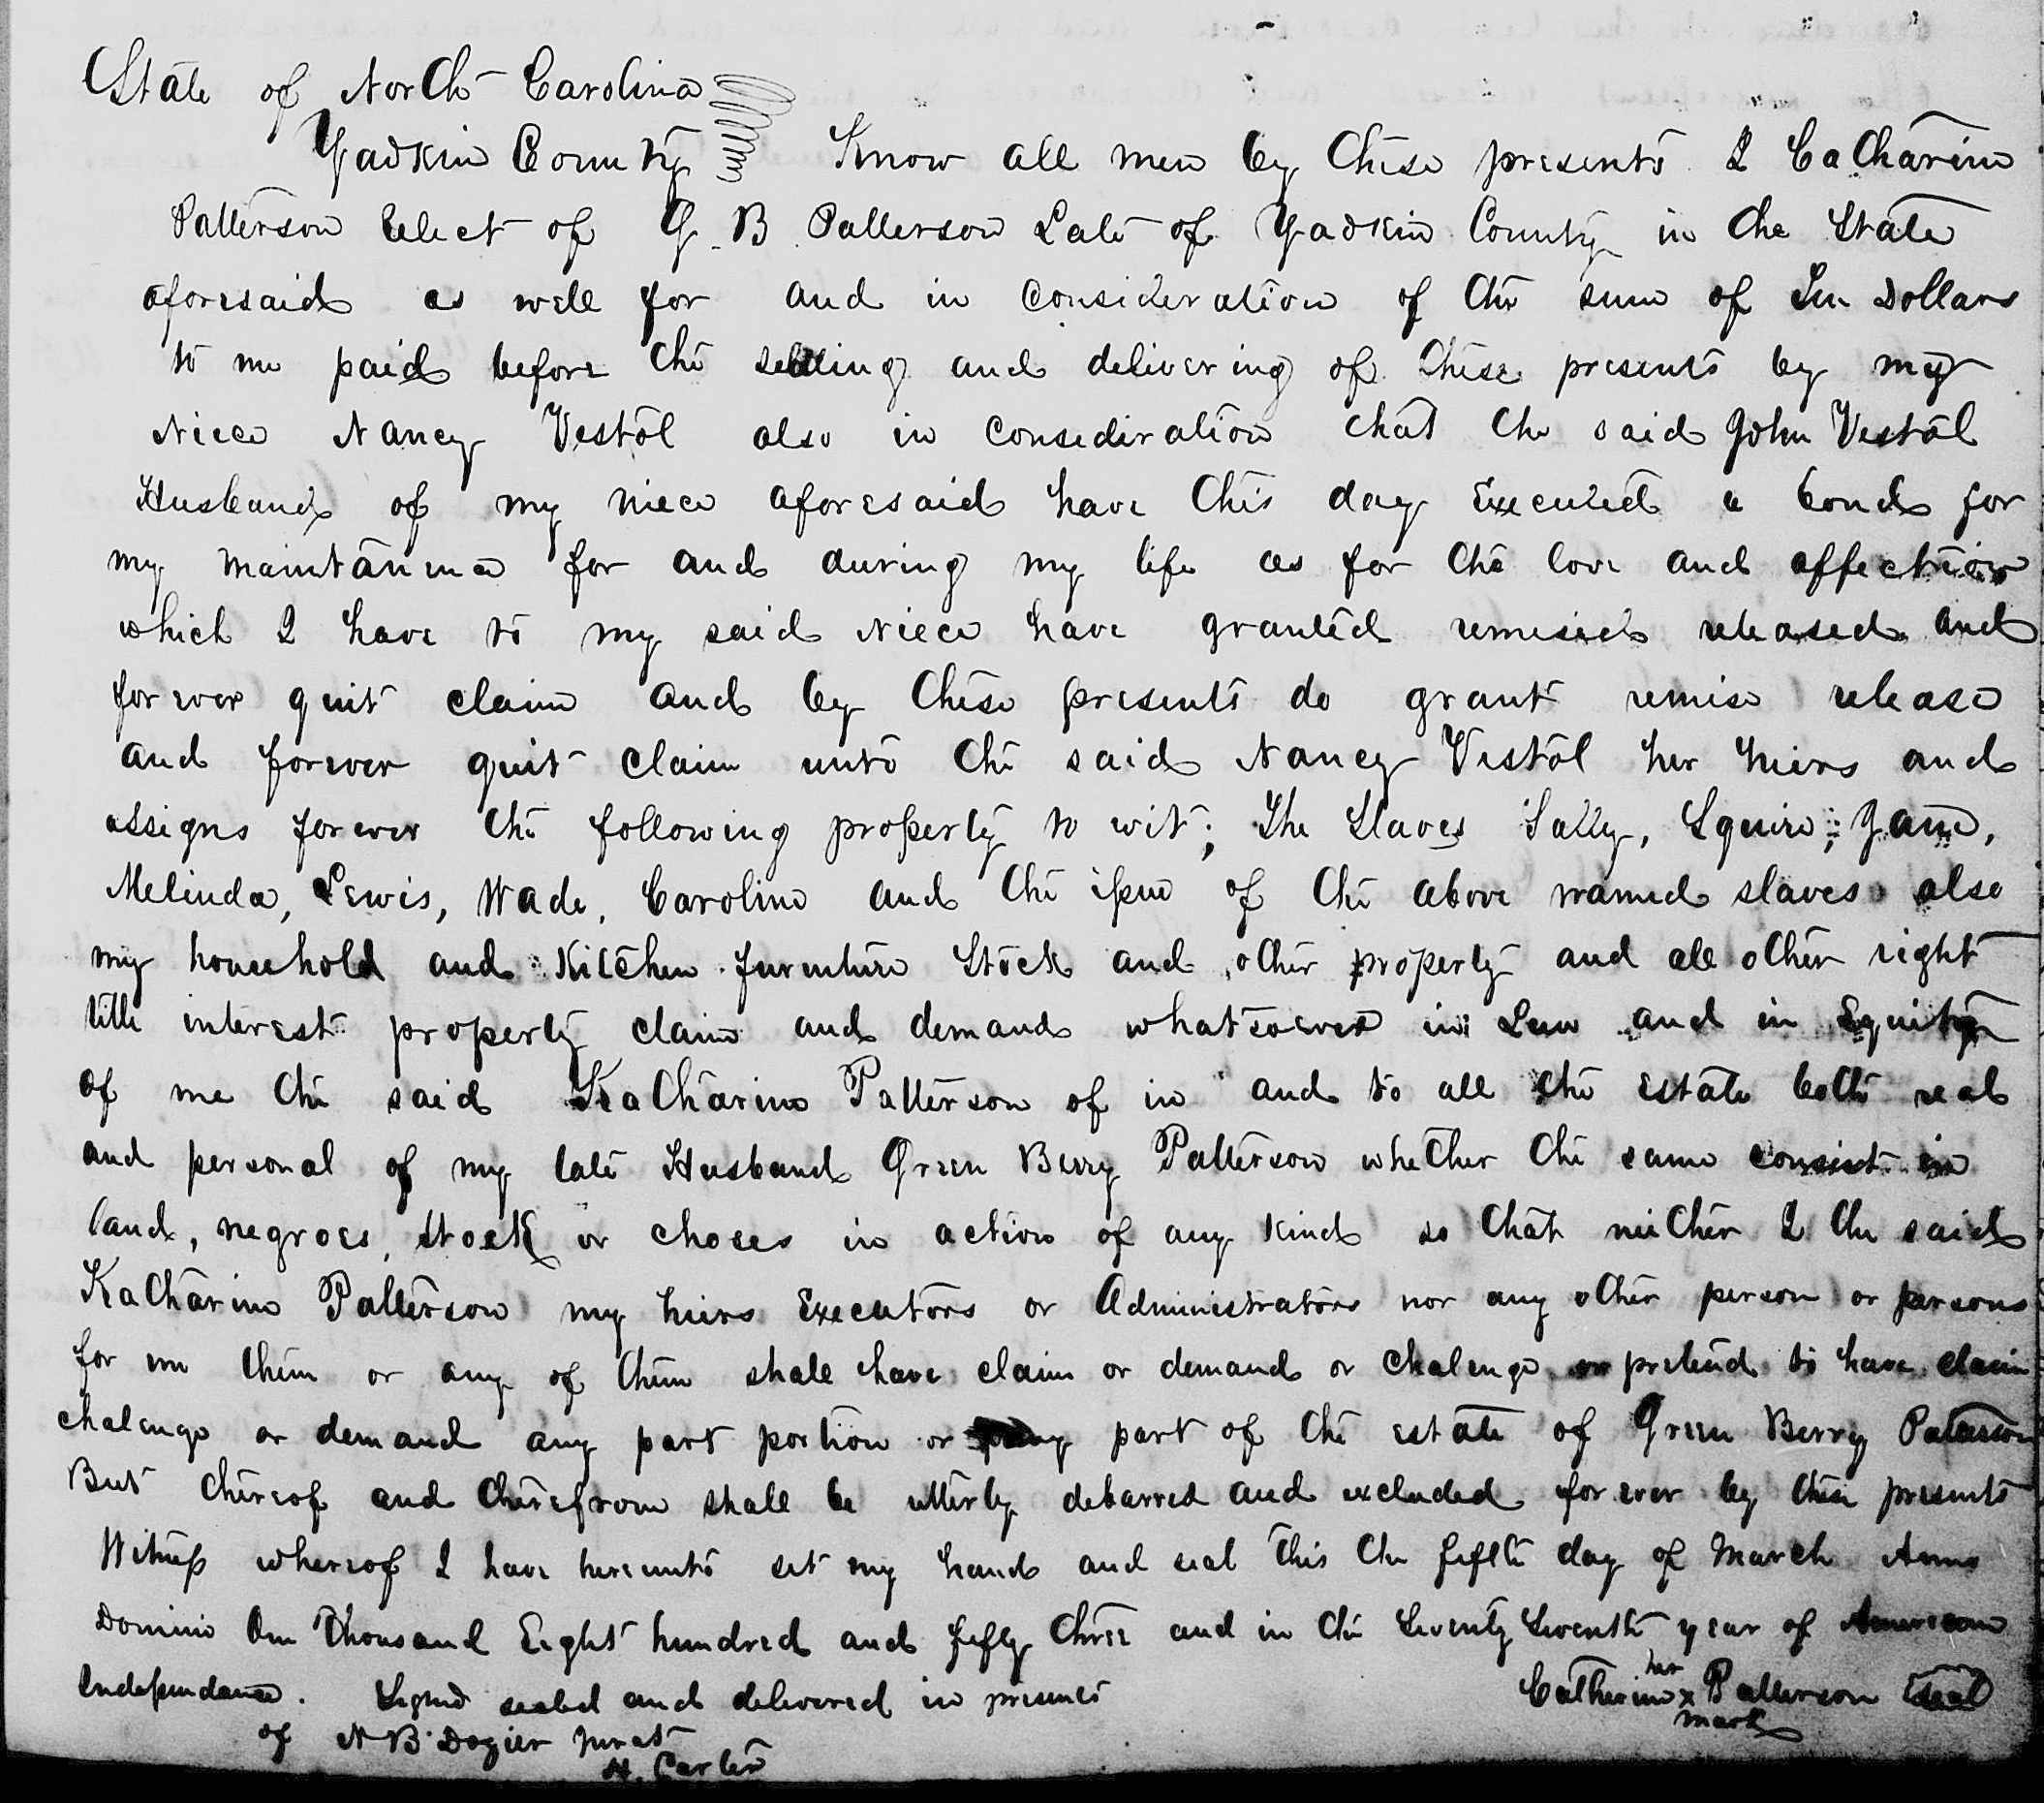 State of North Carolina
Yadkin County Know all men by these presents I Catharine
Patterson Relect of G. B Patterson Late of Yadkin County in the State
aforesaid as well for and in consideration of the sum of Ten Dollars
to me paid before the and delivering of these presents by my
Niece Nancy Vestal also in consediration that the said John Vestal
Husband of my niece aforesaid have this day Executed a bond for
my maintanance for and during my life as for the love and affection
which I have to my said Niece have granted remised released and
forever quit claim and by these presents do grant remise release
and forever quit claim unto the said Nancy Vestal her heirs and
assigns forever the following property to wit; The Slaves Sally, Squire, Jane,
Melinda, Lewis, Wade, Caroline and the issue of the above named slaves also
my household and Kitchen furniture Stock and other property and all other right
title interest property claim and demand whatsoever in Law and in Equity
of me the said Katharine Patterson of in and to all the Estate both real
and personal of my late Husband Green Berry Patterson whether the same consist in
land, negroes, stock or choses in action of any kind so that neither I the said
Katharine Patterson my heirs Executors or Administrators nor any other person or persons
for me them or any of them shall have claim or demand or chalenge or pretend to have claim
chalenge or demand any part portion or part of the estate of Green Berry Patterson
But thereof and therefrom shall be utterly debarred and excluded forever by these presents
Witness whereof I have hereunto set my hand and seal this the fifth day of March Anno
Domini One Thousand Eight hundred and fifty three and in the Seventy Seventh year of American
Independance. Signed sealed and delivered in presents Catherine her x mark Patterson seal
of N B Dozier Jurat
H. Carter